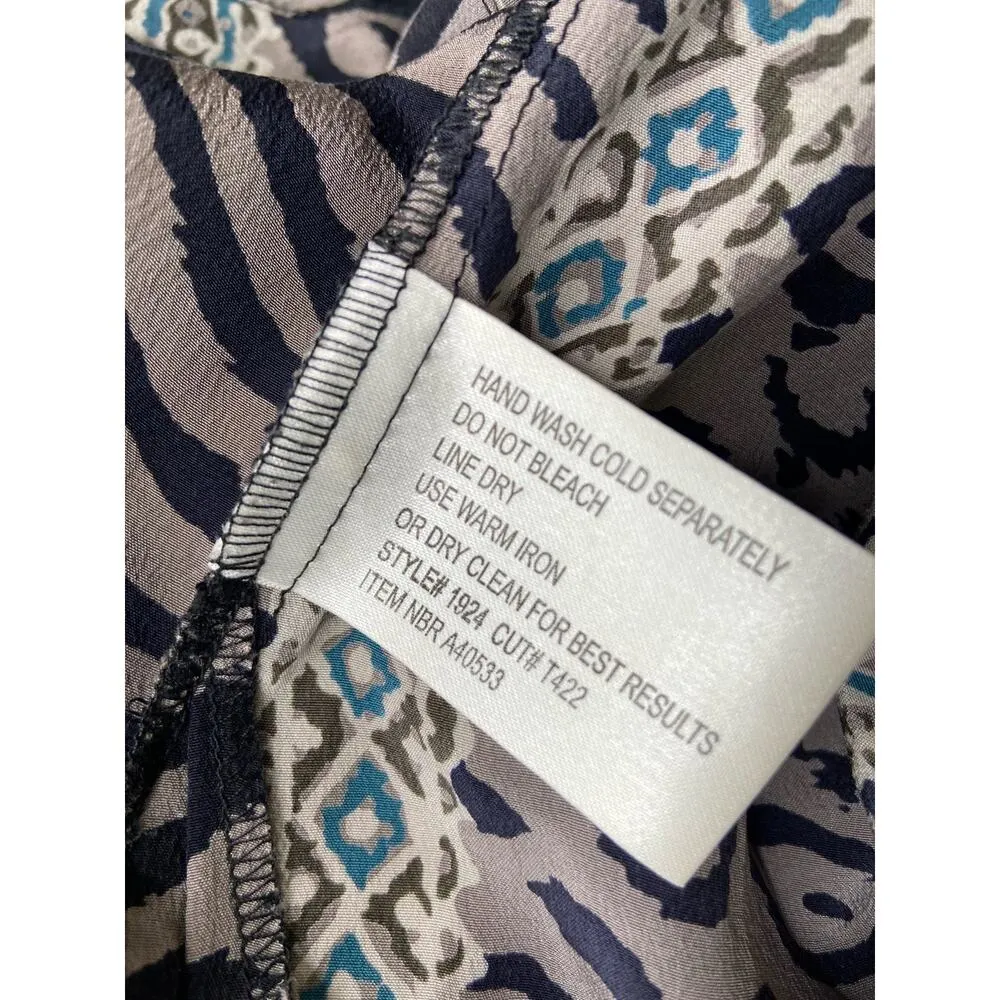 HAND WASH COLD SEPARATELY
DO NOT BLEACH
LINE DRY
USE WARM IRON
OR DRY CLEAN FOR BEST RESULTS
STYLE# 1924 CUT# T422
ITEM NBR A40533